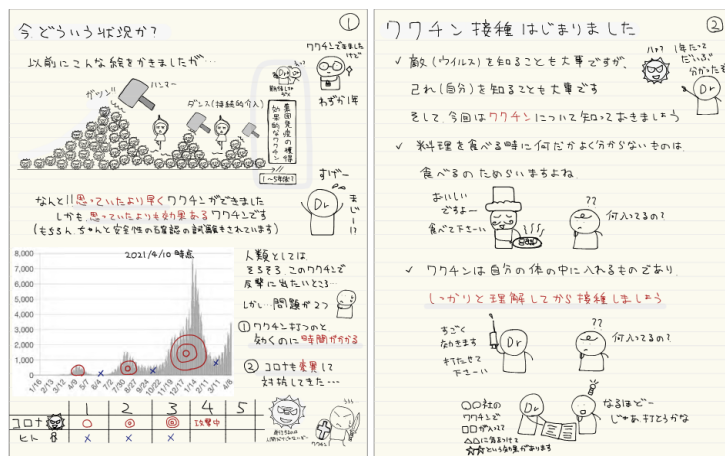 ①
今どういう状況か?
以前にこんな絵をかきましたが…
ワクチンできました
けど
わずか1年
ハンマー
ガツン!!
ダンス(持続的介入)
集団免疫の獲得
効果的なワクチン
1~5年後!
すげー
まじー!?
Dr
なんと!!思っていたより早くワクチンができました
しかも思っていたよりも効果あるワクチンです
(もちろん ちゃんと安全性の確認の試験もされています)
2021/4/10時点
8,000
7,000
6,000
5,000
4,000
3,000
2,000
1,000
0
1/16
2/13
3/12
4/9
5/7
6/4
7/2
7/30
8/27
9/24
10/22
11/19
12/17
1/14
2/11
3/11
4/8
人類としては
そろそろこのワクチンで
反撃に出たいところ…
しかし…問題が2つ
① ワクチン打つのと
効くのに時間がかかる
② コロナも変異して
対抗してきた…
1 2 3 4 5
コロナ 攻撃中
ヒト × × ×
②
ワクチン接種はじまりました
✓ 敵(ウイルス)を知ることも大事ですが、
己れ(自分)を知ることも大事です
そして、今回はワクチンについて知っておきましょう
1年たって
だいぶ
分かったぞ
Dr
✓ 料理を食べる時に何だかよく分からないものは
食べるのためらいますよね.
おいしい
ですよー
食べて下さーい
??
何入ってるの?
✓ ワクチンは自分の体の中に入れるものであり.
しっかりと理解してから接種しましょう
すごく
なおきます
打たせて
下さーい
Dr
??
何入ってるの?
○○社の
ワクチンで
□□が入ってて
△△に気をつけて
☆☆という効果があります
Dr
なるほどー
じゃあ、打とうかな